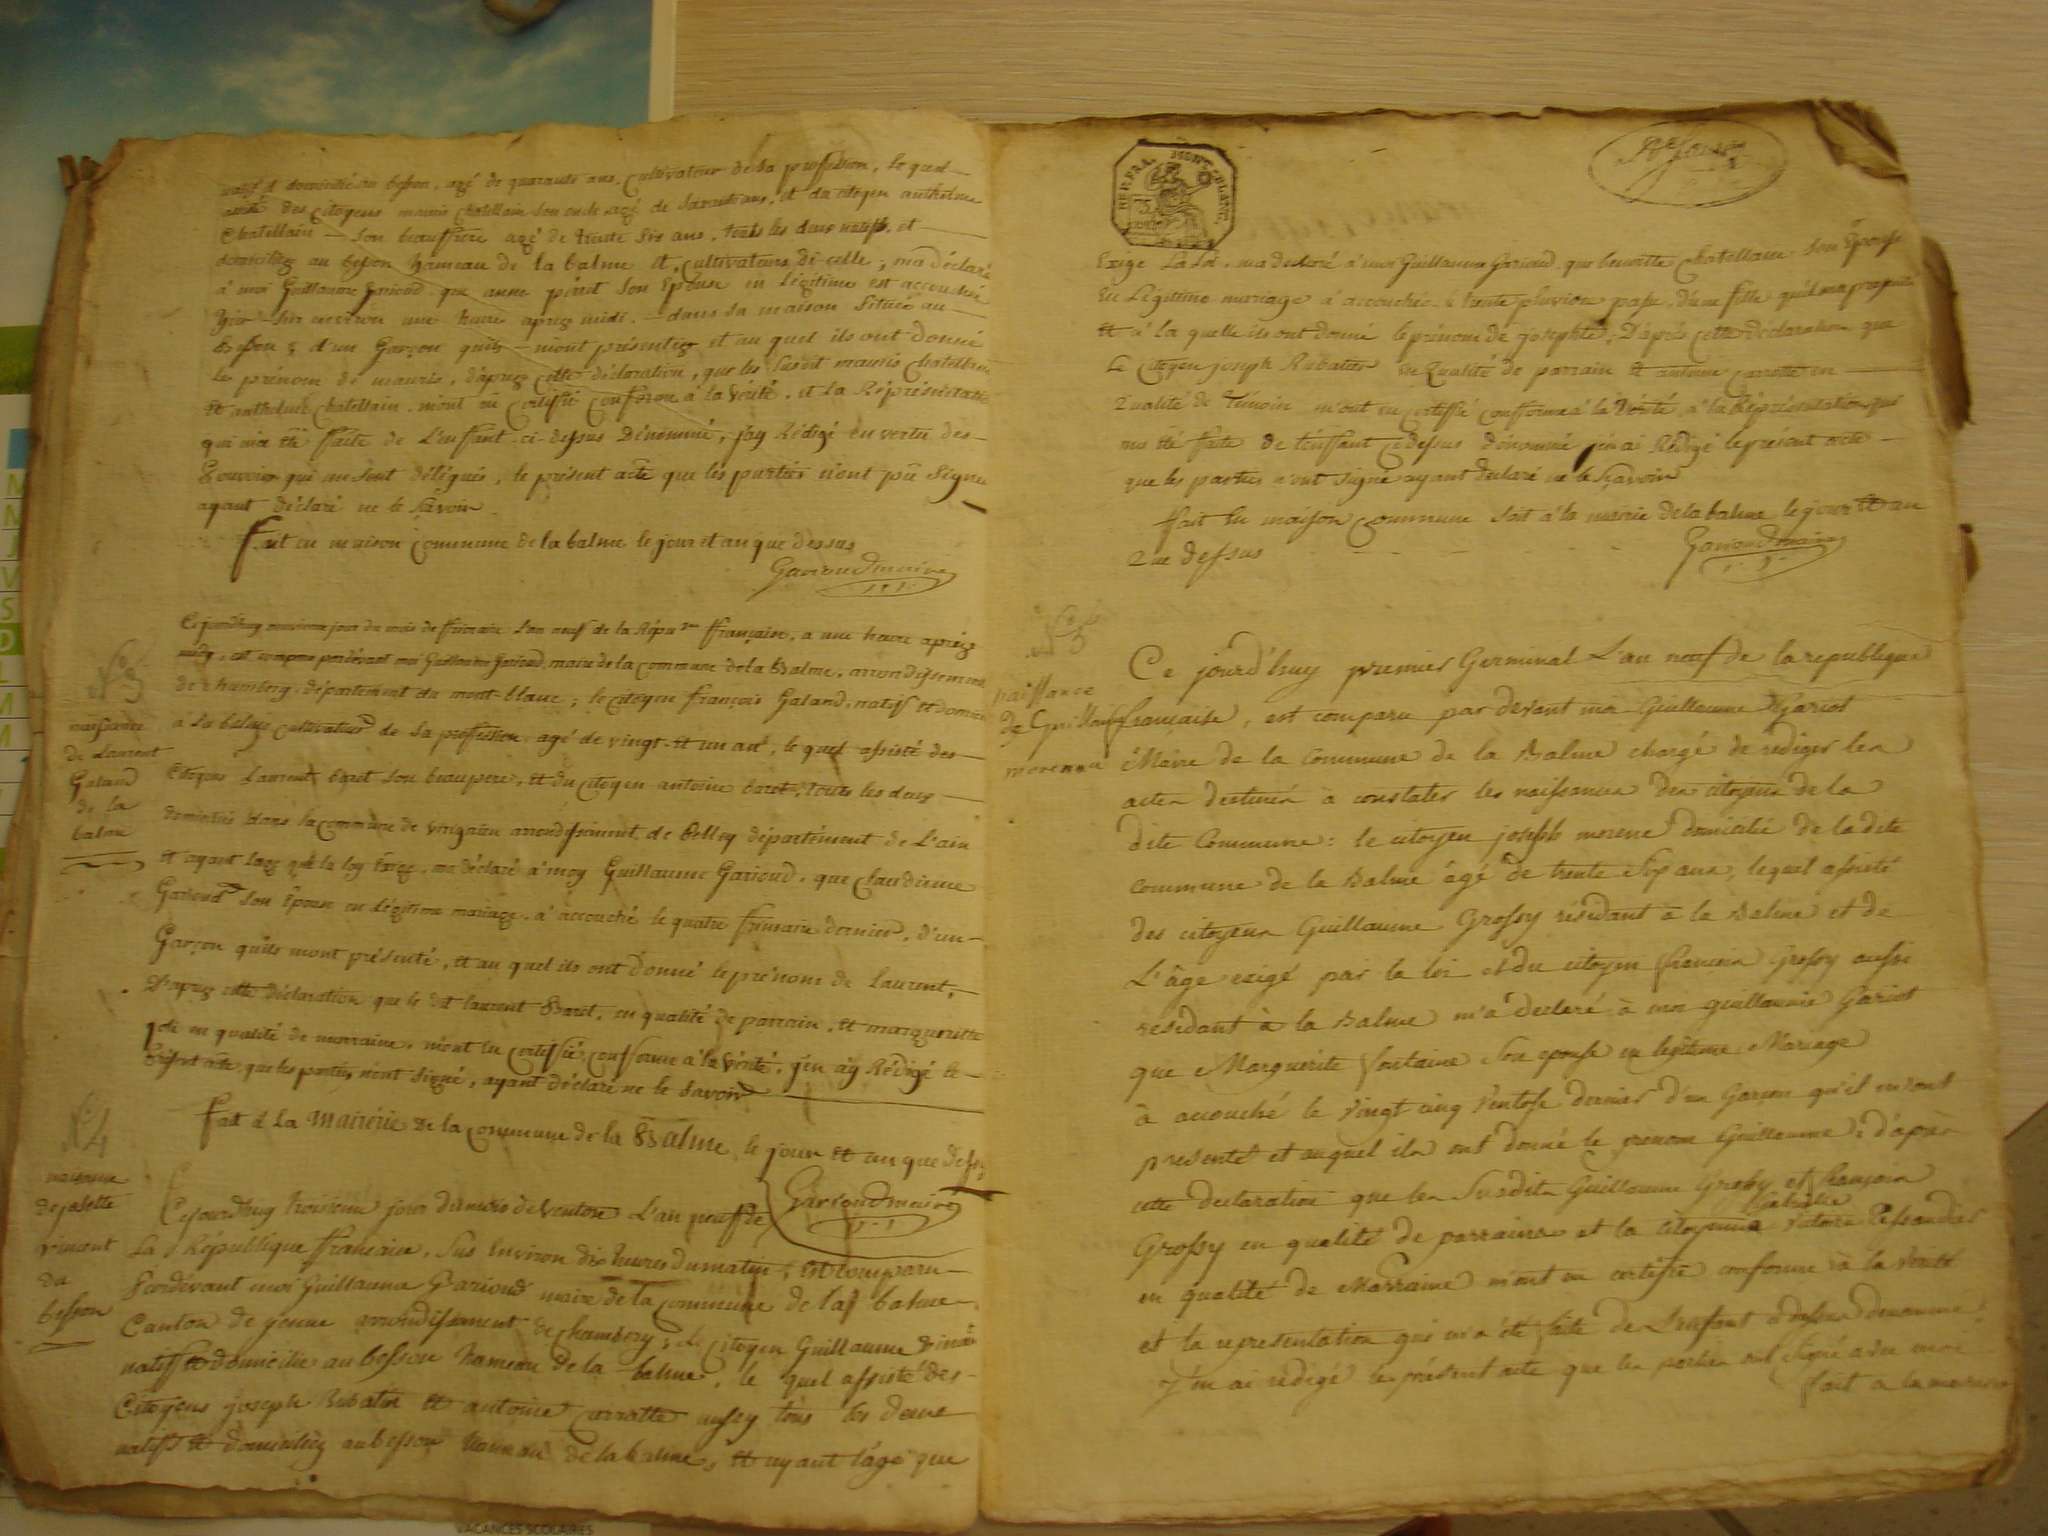 natif et domicilié au besson, agé de quarante ans, cultivateur de sa proffession, le quel
assisté des citoyens mauris Chatellain son oncle agé de soixante ans, et du citoyen anthelme
Chatellain son beaufrere agé de trente six ans, touts les deux natifs, et
domiciliez au besson hameau de la balme et cultivateurs di celle, ma déclaré
à moi Guillaume Gariond que anne son Epouse en légitime est accouchée
hier sur environ une heure aprez midi dans sa maison située au
besson, d'un Garçon quils mont présentez et au quel ils ont donné
le prénom de mauris, d'aprez cette déclaration, que les susdit mauris Chatellain
et anthelme Chatellain mont en Certiffié Conforme à la vérité, et la Réprésentation
qui ma été faite de L'enfant ci-dessus Dénommé, j'ay Rédigé en vertu des
Pouvoirs qui me sont délégués, le présent acte que les parties n'ont pû Signer
ayant déclaré ne le Sçavoir
Fait en maison Commune de la balme le jour et an que dessus
Gariond maire
N° 3
naissance
de Laurent
Galand
de la
balme
Cejourdhuy onzieme jour du mois de frimaire L'an neuf de la République française, a une heure aprèz
midy, est comparu pardevant moi Guillaume Gariond, maire de la commune de la Balme, arrondissement
de chambery, département du mont-blanc; le citoyen françois Galand, natif et domicilié
à la balme cultivateur de sa proffession, agé de vingt-et un ans, le quel assisté des
Citoyens Laurent baret son beaupere, et du Citoyen antoine baret, touts les deux
domiciliés dans la commune de virignien arrondissement de Belley département de L'ain
et ayant l'age que la loy Exige, ma déclaré à moy Guillaume Gariond, que Claudinne
Gariond son Epouse en légitime mariage, a accouché le quatre frimaire dernier, d'un
Garçon quils mont présenté, et au quel ils ont donné le prénom de Laurent,
D'aprez cette déclaration que le dit laurent Baret, en qualité de parrain, et margueritte
en qualité de marraine, mont en Certiffié Conforme à la Vérité, j'en ay Rédigé le
présent acte que les parties nont signé, ayant déclaré ne le Savoir
Fait à La Mairérie de la commune de la Balme, le jour et an que dessus
Gariond maire
N° 4
naissance
de josette
vincent
du
besson
Cejourdhuy troisieme jour du mois de Ventose L'an neuf de
La République française, sus Environ dix heures du matin, est comparu
Pardevant moi Guillaume Gariond maire de la Commune de la balme
Canton de yenne arrondissement de chambery, le Citoyen Guillaume
natif et domicilié au besson hameau de la balme, le quel assisté des
Citoyens joseph Rubatier et antoine Carrotte aussy tous les deux
natifs et domiciliéz au besson hameau de la balme, et ayant l'age que
REP. FRA. MONT-BLANC.
Exige La Loi, ma déclaré à moi Guillaume Gariond que benoitte Chatellain son Epouse
En Légitime mariage à accouchée à trente pluviose passé, d'une fille qu'il ma présenté
et à la quelle ils ont donné le prénom de josephte, D'aprés cette déclaration que
Le Citoyen joseph Rubatier en Qualité de parrain et antoine Carrotte en
Qualité de Témoin m'ont en certiffié confforme à la vérité, à la Réprésentation qui
ma été faite de l'enffant ci dessus dénommé j'en ai Rédigé le présent acte
que les parties n'ont signé ayant déclaré ne le Sçavoir
fait En maison Commune soit à la mairie de la balme le jour et an
Que dessus
Gariond maire
N° 5
naissance
de Guillaume
morenne
Ce jourd'huy premier Germinal L'an neuf de la republique
francaise, est comparu par devant moi Guillaume Gariot
Maire de la Commune de la Balme chargé de rediger les
actes destinés à constater les naissances des citoyens de la
dite Commune: le citoyen joseph morene domicilié de la dite
commune de la Balme âgé de trente six ans, lequel assisté
des citoyens Guillaume Grossy résidant à la Balme et de
L'âge exigé par la loi et du citoyen francois grossy aussi
residant à la Balme m'a declaré à moi guillaume Gariot
que Marguerite fontaine son epouse en legitime Mariage
à accouché le vingt cinq Ventose dernier d'un Garçon qu'il m'ont
presenté et auquel ils ont donné le prenom Guillaume: d'après
cette declaration que les Susdits Guillaume Grossy et françois
Grossy en qualité de parrains et la citoyenne
en qualité de Marraine m'ont en certifié conforme à la verité
et la representation qui m'a été faite de L'enfant ci dessus denommé
J'en ai redigé le présent acte que les parties ont signé avec moi
fait a la mairie